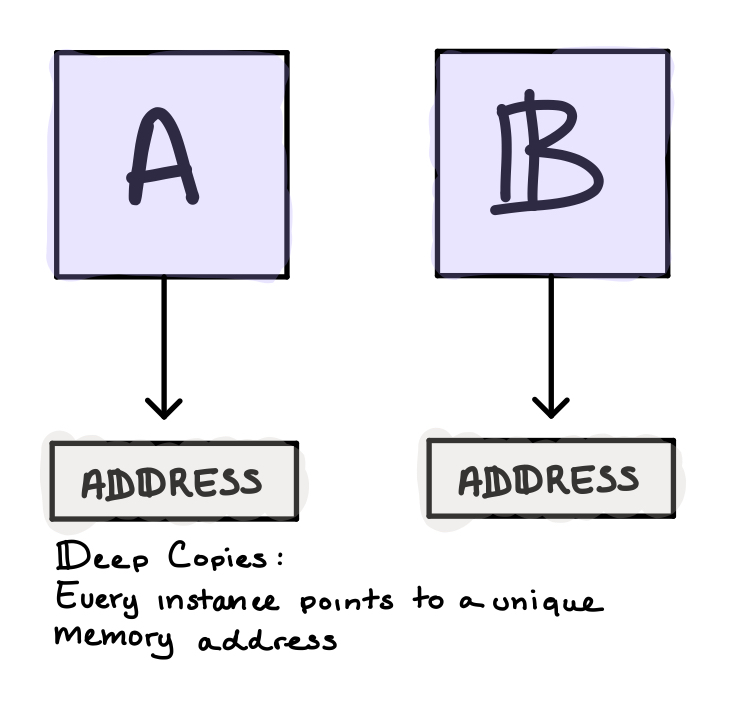 A B
ADDRESS ADDRESS
Deep Copies:
Every instance points to a unique
memory address